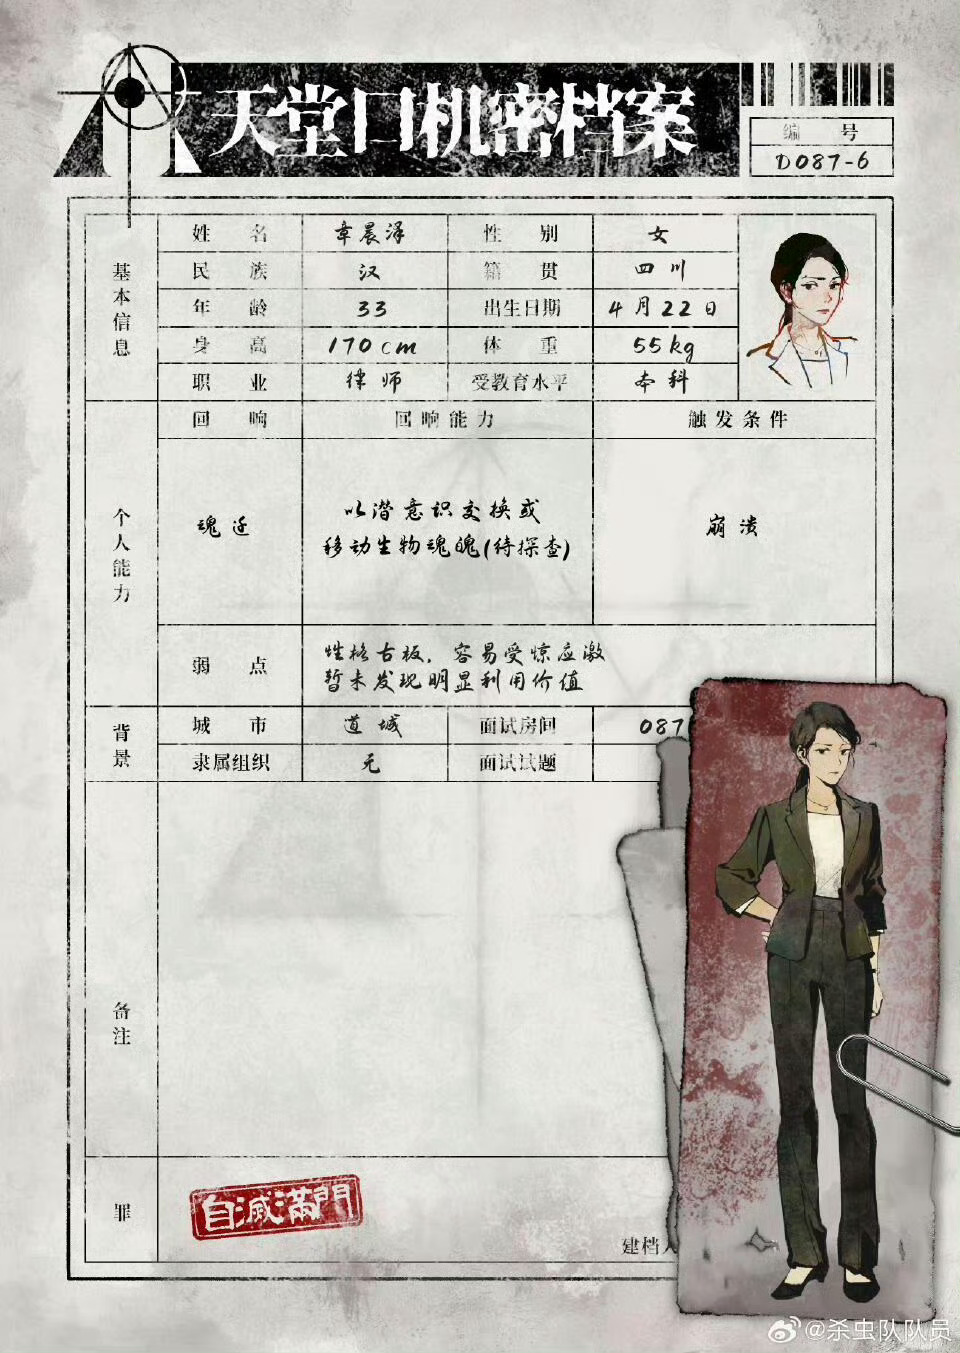 天堂口机密档案
编号
D087-6
基本信息
姓名 章晨泽 性别 女
民族 汉 籍贯 四川
年龄 33 出生日期 4月22日
身高 170cm 体重 55kg
职业 律师 受教育水平 本科
个人能力
回响 回响能力 触发条件
魂迁
以潜意识交换或
移动生物魂魄(待探查)
崩溃
弱点
性格古板，容易受惊应激
暂未发现明显利用价值
背景
城市 道城 面试房间 087
隶属组织 无 面试试题
备注
罪
自滅滿門
建档人
@杀虫队队员